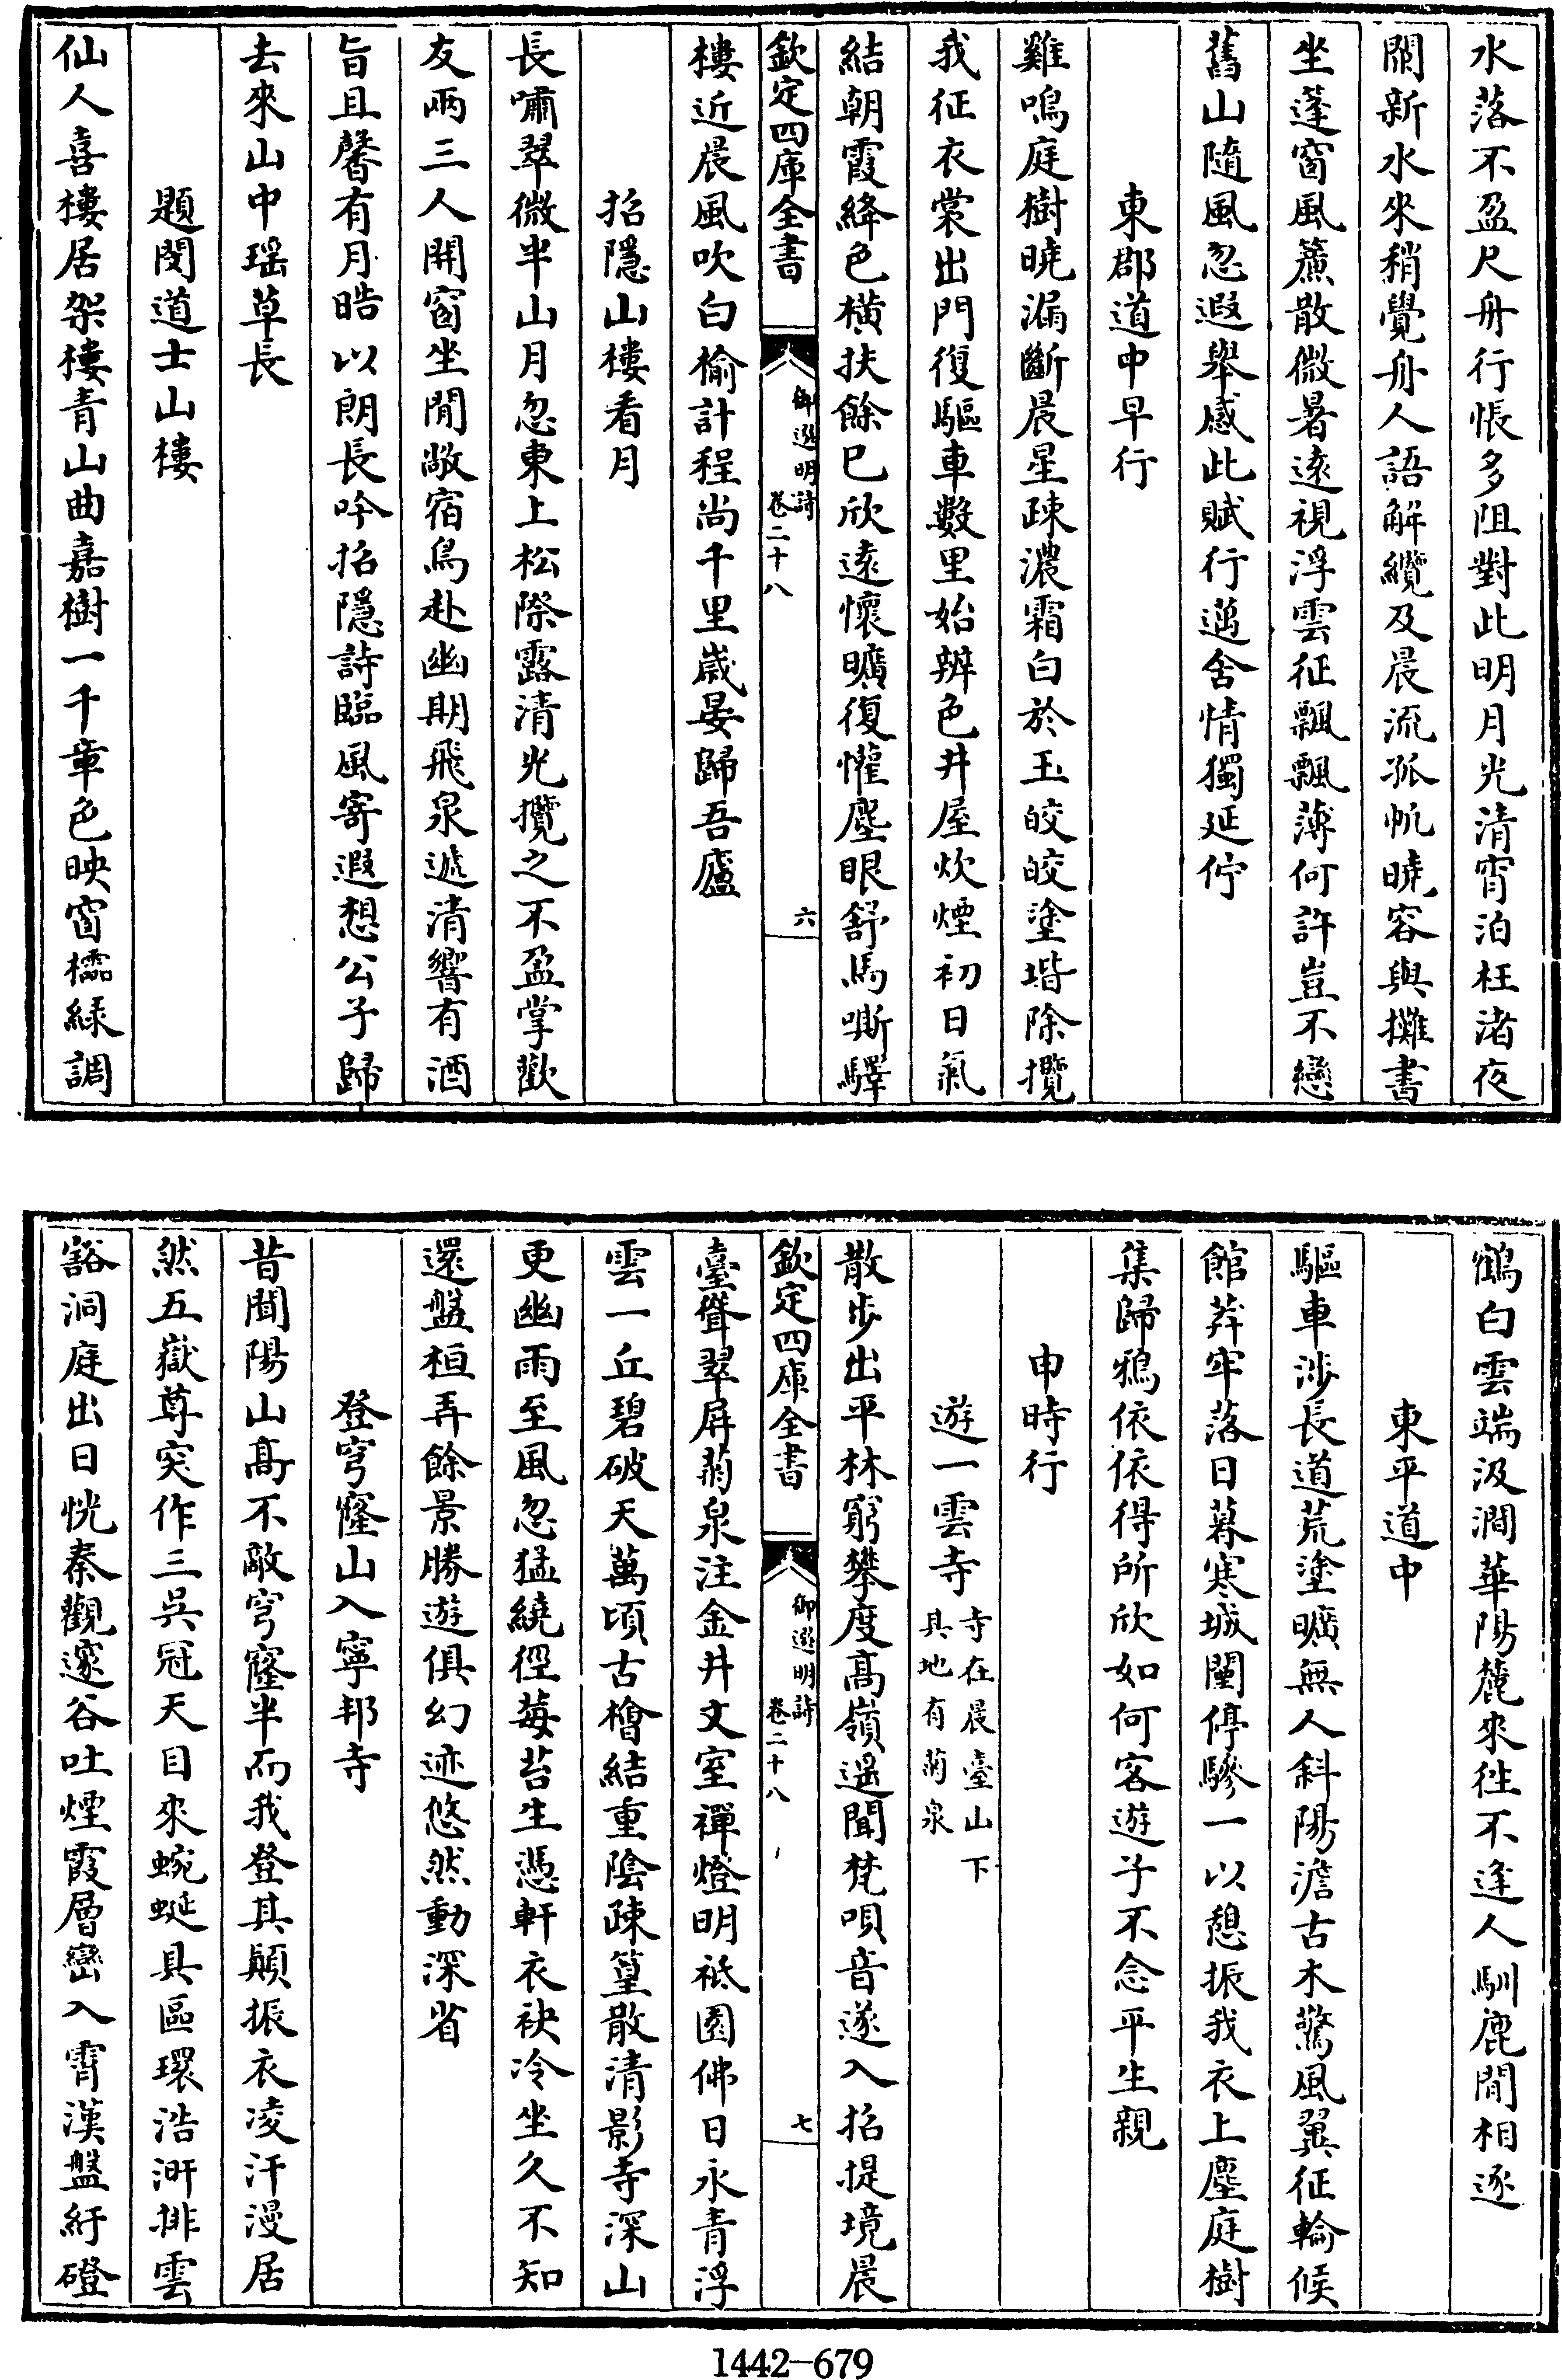 水落不盈尺舟行悵多阻對此明月光清宵泊枉渚夜
闌新水來稍覺舟人語解纜及晨流孤帆曉容與攤書
坐蓬窗風簾散微暑遠視浮雲征飄飄薄何許豈不戀
舊山隨風忽遐舉感此賦行邁舍情獨延佇
東郡道中早行
雞鳴庭樹曉漏斷晨星疎濃霜白於玉皎皎塗堦除攬
我征衣裳出門復驅車數里始辨色井屋炊煙初日氣
結朝霞絳色橫扶餘已欣遠懷曠復懼塵眼舒馬嘶驛
欽定四庫全書
御選明詩
卷二十八
六
樓近晨風吹白榆計程尚千里歲晏歸吾廬
招隱山樓看月
長嘯翠微半山月忽東上松際露清光攬之不盈掌歡
友兩三人開窗坐閒敞宿鳥赴幽期飛泉遞清響有酒
旨且馨有月皓以朗長吟招隱詩臨風寄遐想公子歸
去來山中瑤草長
題閔道士山樓
仙人喜樓居架樓青山曲嘉樹一千章色映窗櫺綠調
鶴白雲端汲澗華陽麓來往不逢人馴鹿閒相逐
東平道中
驅車涉長道荒塗曠無人斜陽澹古木驚風翼征輪候
館莽牢落日暮寒城闉停驂一以憩振我衣上塵庭樹
集歸鴉依依得所欣如何客遊子不念平生親
申時行
遊一雲寺寺在晨臺山下
其地有菊泉
散步出平林窮攀度高嶺遥聞梵唄音遂入招提境晨
欽定四庫全書
御選明詩
卷二十八
七
臺聳翠屏菊泉注金井文室禪燈明祗園佛日永青浮
雲一丘碧破天萬頃古檜結重陰疎篁散清影寺深山
更幽雨至風忽猛繞徑莓苔生憑軒衣袂冷坐久不知
還盤桓弄餘景勝遊俱幻迹悠然動深省
登穹窿山入寧邦寺
昔聞陽山髙不敵穹窿半而我登其顛振衣凌汗漫居
然五嶽尊突作三吳冠天目來蜿蜒具區環浩汧排雲
豁洞庭出日恍秦觀邃谷吐煙霞層巒入霄漢盤紆磴
1442-679